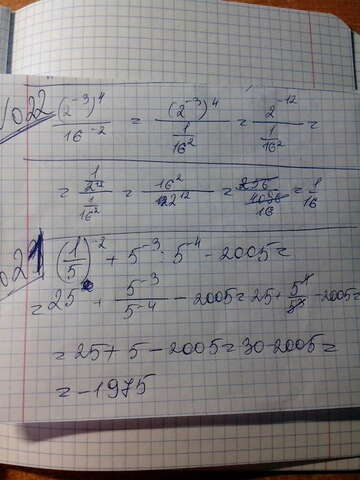 № 22 (2⁻³)⁴ / 16⁻² = (2⁻³)⁴ / (1/16²) = 2⁻¹² / (1/16²) =
= (1/2¹²) / (1/16²) = 16² / 2¹² = 256 / 4096 16 = 1/16
(1/5)⁻² + 5⁻³ · 5⁻⁴ - 2005 =
= 25 + 5⁻³ / 5⁻⁴ - 2005 = 25 + 5⁴ / 5³ - 2005 =
= 25 + 5 - 2005 = 30 - 2005 =
= -1975